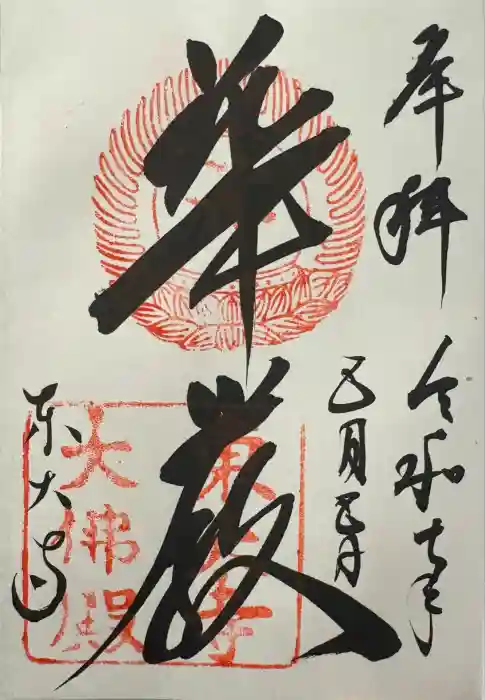 奉拝
令和七年
五月五日
華厳
東大寺
東大寺
大佛殿